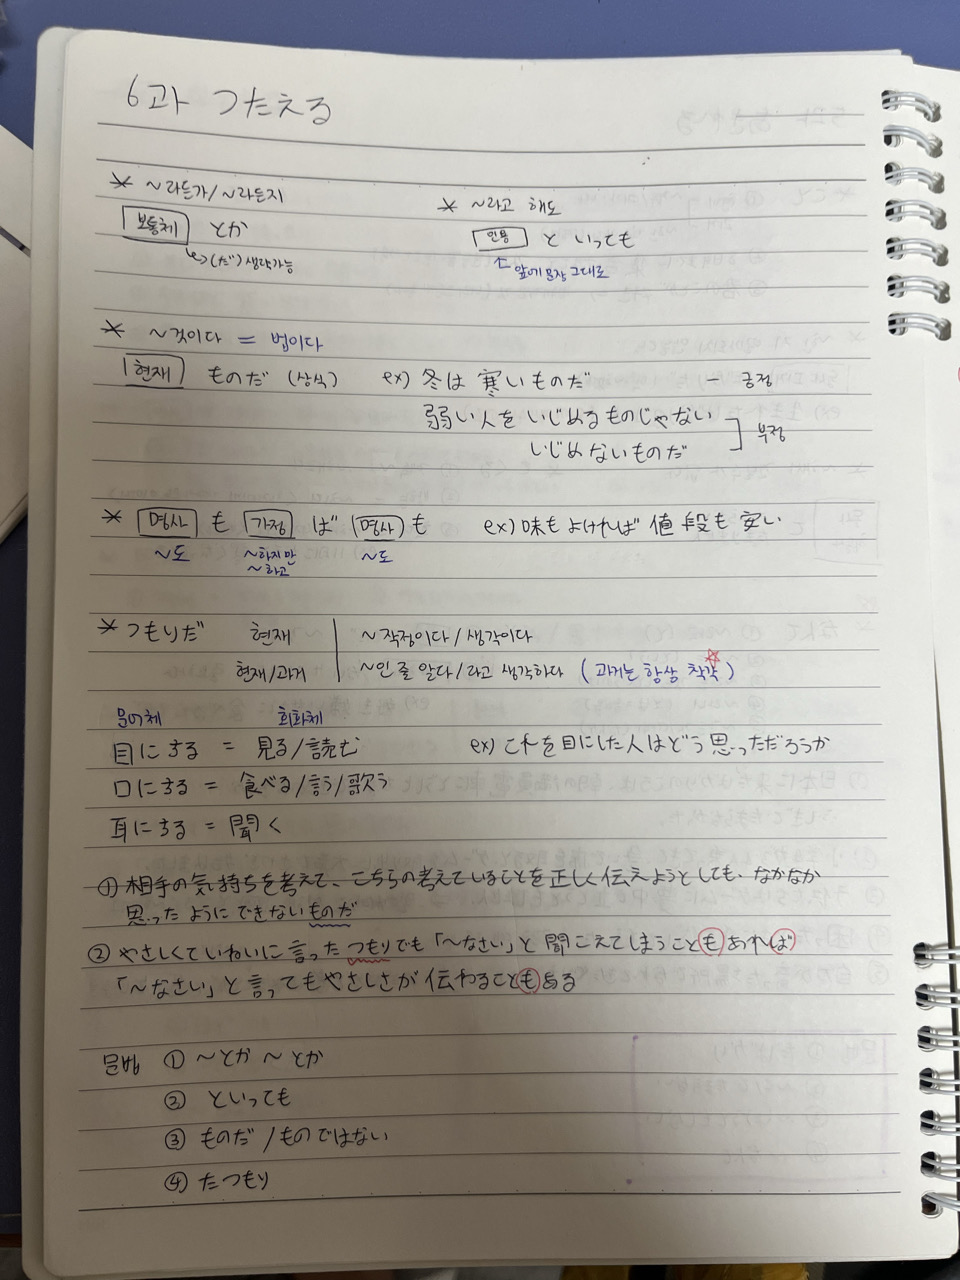 6과 つたえる
* ~라든가/~라든지
보통체 とか
↳(だ) 생략가능
* ~라고 해도
인용 と いっても
↑ 앞에 문장 그대로
* ~것이다 = 법이다
현재 ものだ (상식) ex) 冬は 寒いものだ - 긍정
弱い人を いじめるものじゃない
いじめないものだ ] 부정
* 명사 も 가정 ば 명사 も ex) 味も よければ 値段も 安い
~도 ~하지만 ~도
~하고
* つもりだ 현재 ~작정이다/생각이다
현재/과거 ~인 줄 알다/라고 생각하다 (과거는 항상 착각☆)
문어체 회화체
目にする = 見る/読む ex) これを目にした人はどう思っただろうか
口にする = 食べる/言う/歌う
耳にする = 聞く
① 相手の気持ちを考えて、こちらの考えていることを正しく伝えようとしても、なかなか
思ったようにできないものだ
② やさしくていねいに言ったつもりでも「~なさい」と聞こえてしまうこともあれば
「~なさい」と言ってもやさしさが伝わることもある
문법 ① ~とか ~とか
② といっても
③ ものだ/ものではない
④ たつもり